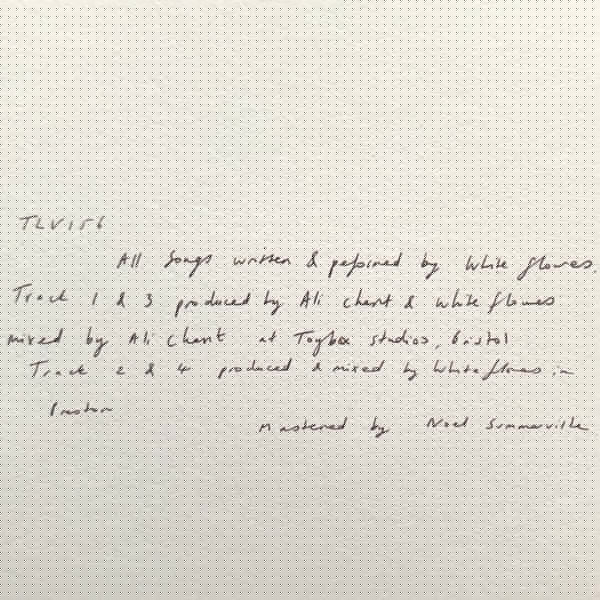 TLV156
All songs written & performed by White flowers.
Track 1 & 3 produced by Ali chant & white flowers
mixed by Ali Chant at Toybox studios, Bristol
Track 2 & 4 produced & mixed by White flowers in
Preston
Mastered by Noel Summerville